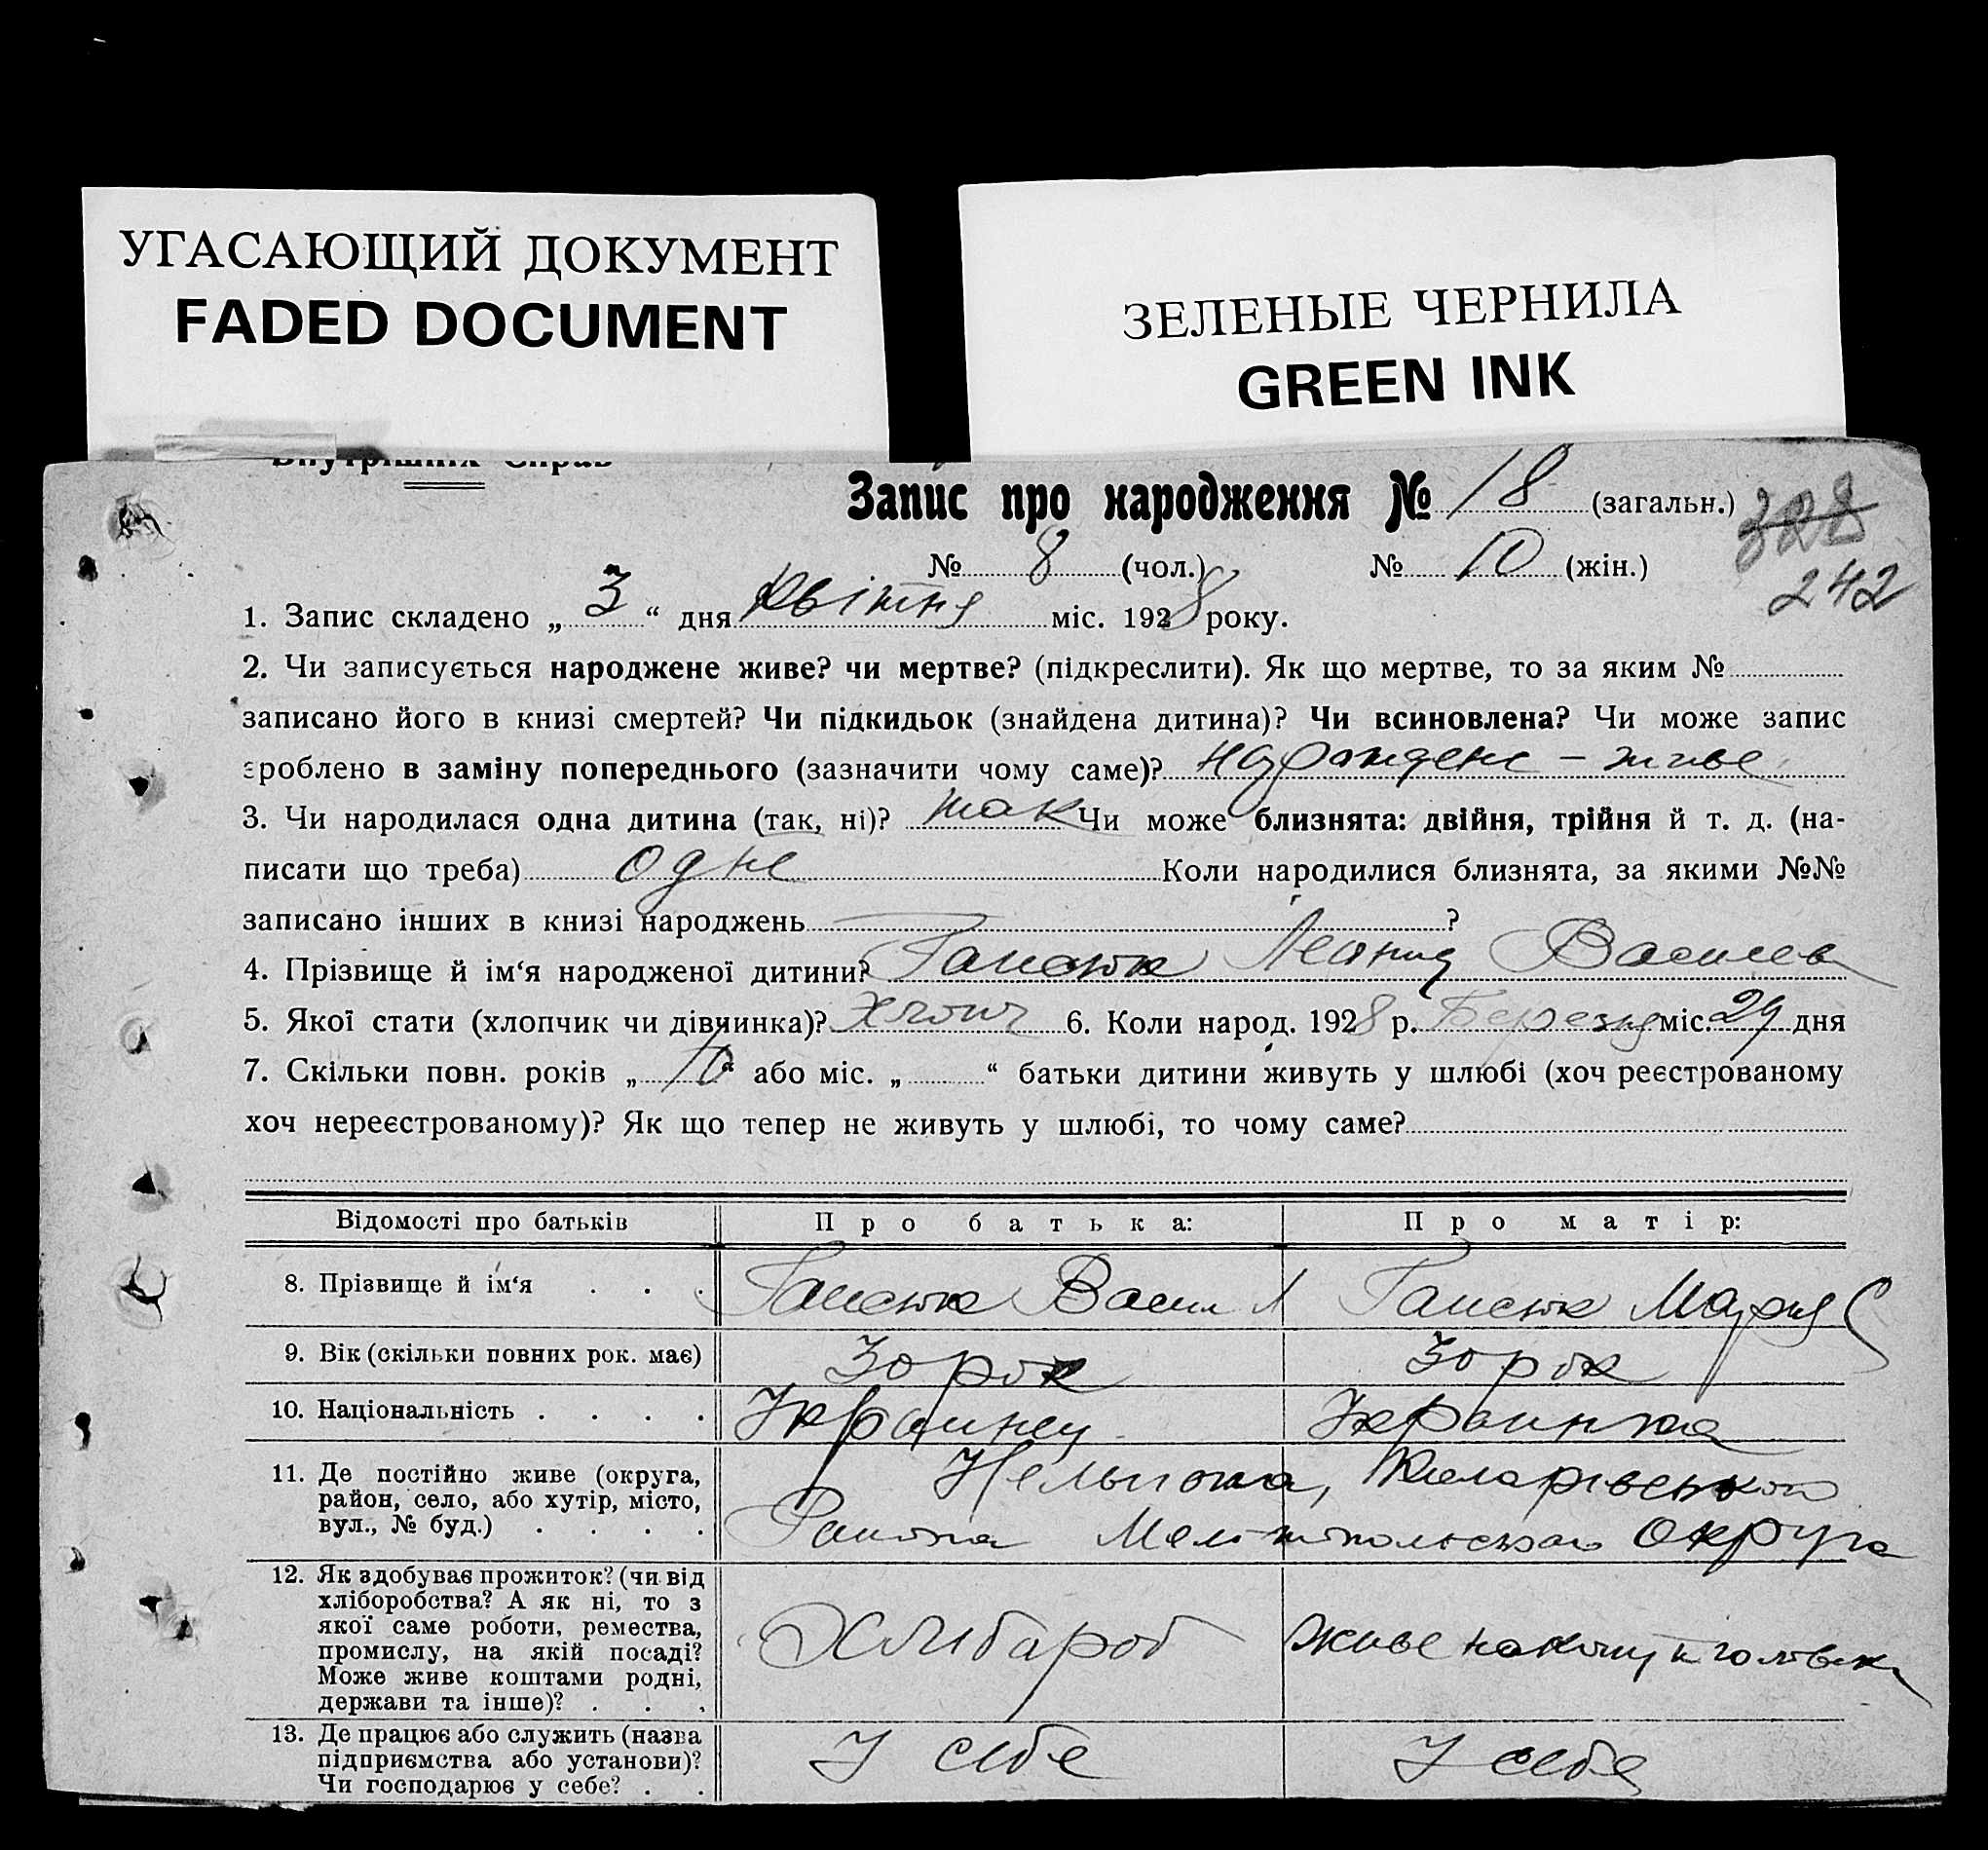 УГАСАЮЩИЙ ДОКУМЕНТ
FADED DOCUMENT
ЗЕЛЕНЫЕ ЧЕРНИЛА
GREEN INK
Внутрішніх Справ
Запис про народження № 18 (загальн.) 328
№ 8 (чол.) № 10 (жін.)
242
1. Запис складено „ 3 “ дня Квітня міс. 1928 року.
2. Чи записується народжене живе? чи мертве? (підкреслити). Як що мертве, то за яким №
записано його в книзі смертей? Чи підкидьок (знайдена дитина)? Чи всиновлена? Чи може запис
зроблено в заміну попереднього (зазначити чому саме)? народжене – живе
3. Чи народилася одна дитина (так, ні)? так Чи може близнята: двійня, трійня й т. д. (на-
писати що треба) одне Коли народилися близнята, за якими №№
записано інших в книзі народжень ?
4. Прізвище й ім‘я народженої дитини? Леонид Василев
5. Якої стати (хлопчик чи дівчинка)? 6. Коли народ. 1928 р. Березня міс. 29 дня
7. Скільки повн. років „ 10 “ або міс. „ “ батьки дитини живуть у шлюбі (хоч реєстрованому
хоч нереєстрованому)? Як що тепер не живуть у шлюбі, то чому саме?
Відомості про батьків Про батька: Про матір:
8. Прізвище й ім‘я . . . Васил Л Мария С
9. Вік (скільки повних рок. має) 30 рок 30 рок
10. Національність . . . . Украинец Украинка
11. Де постійно живе (округа,
район, село, або хутір, місто,
вул., № буд.) . . . .
Района Мелитопольского Округа
12. Як здобуває прожиток? (чи від
хліборобства? А як ні, то з
якої саме роботи, ремества,
промислу, на якій посаді?
Може живе коштами родні,
держави та інше)? . . .
Хлибароб живе на кошт головика
13. Де працює або служить (назва
підприємства або установи)?
Чи господарює у себе? . .
У себе У себе